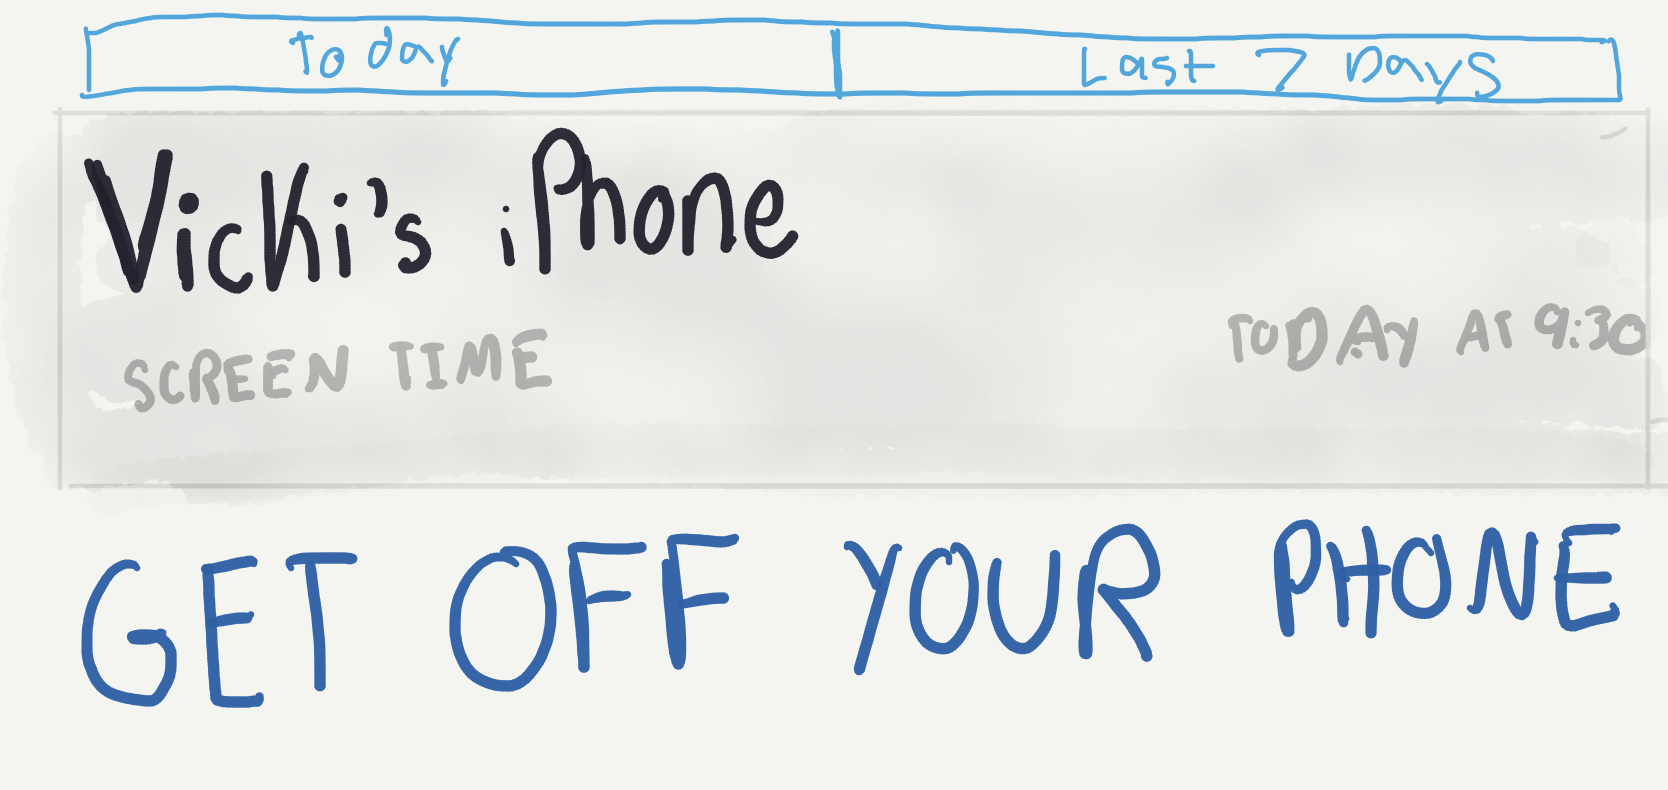 Today Last 7 Days
Vicki's iPhone
SCREEN TIME TODAY AT 9:30
GET OFF YOUR PHONE